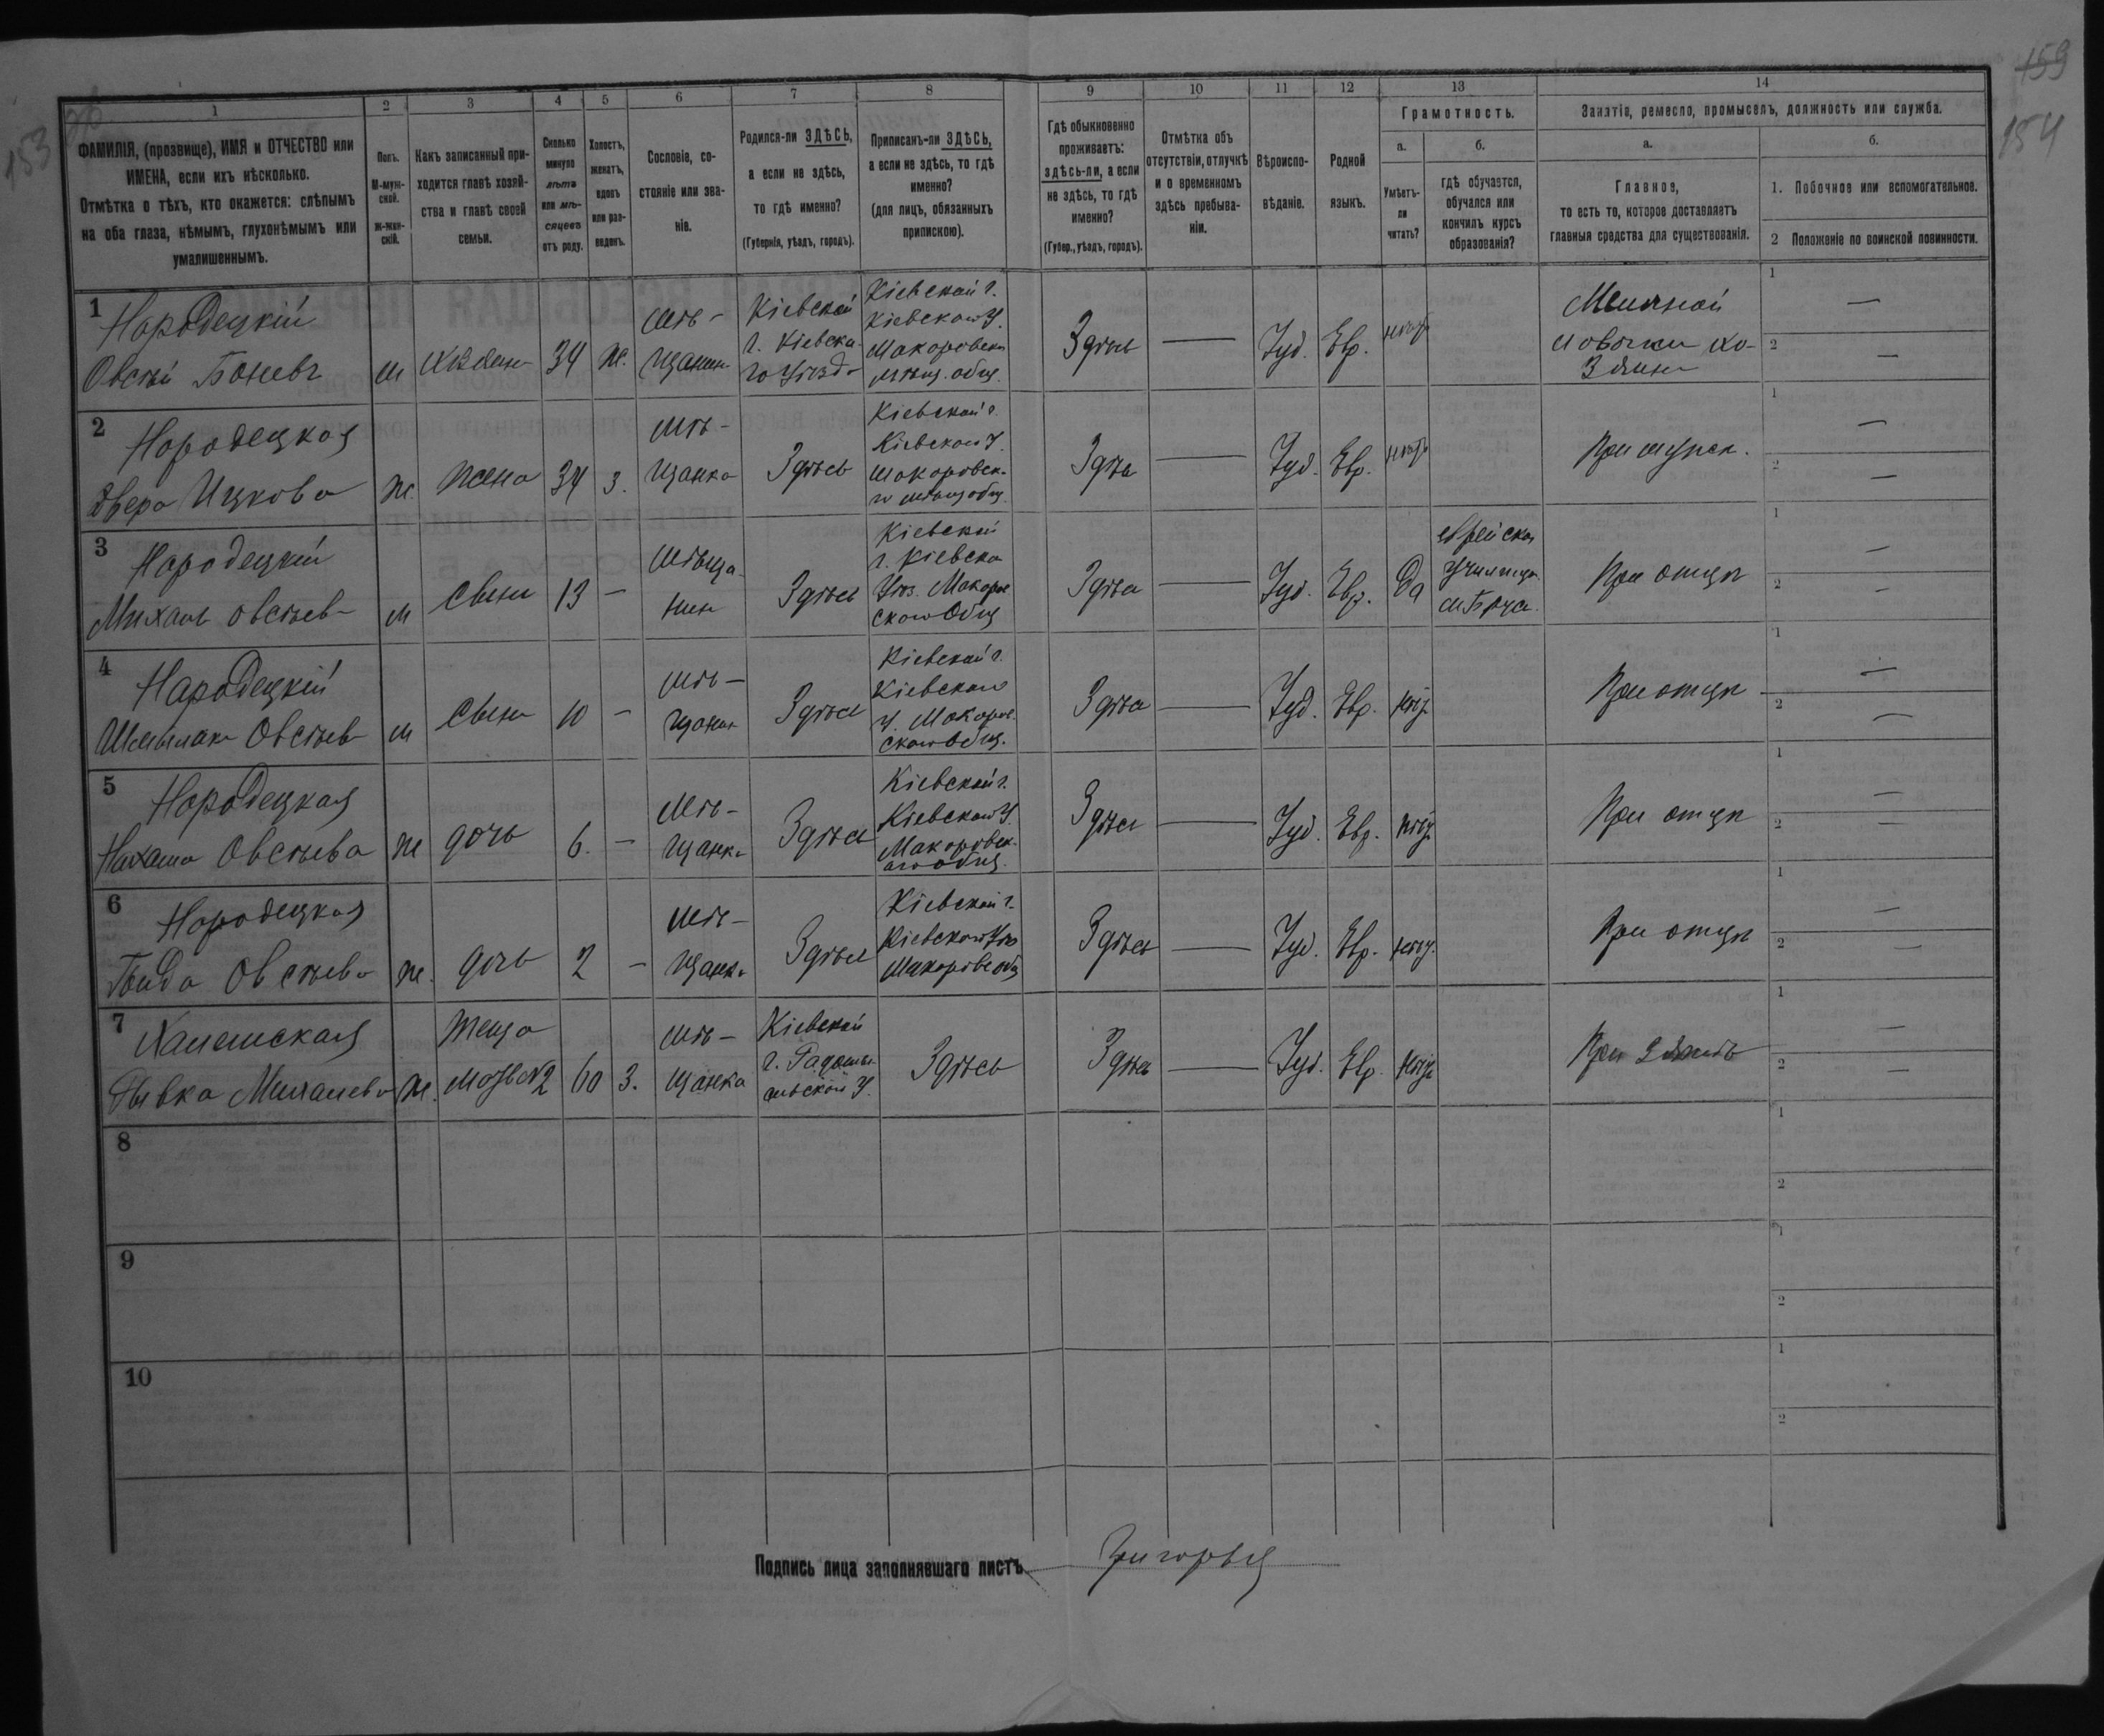 153 об
159
154
1
2
3
4
5
6
7
8
9
10
11
12
13
14
ФАМИЛІЯ, (прозвище), ИМЯ и ОТЧЕСТВО или
ИМЕНА, если ихъ нѣсколько.
Отмѣтка о тѣхъ, кто окажется: слѣпымъ
на оба глаза, нѣмымъ, глухонѣмымъ или
умалишеннымъ.
Полъ.
М-муж-
ской.
Ж-жен-
скій.
Какъ записанный при-
ходится главѣ хозяй-
ства и главѣ своей
семьи.
Сколько
минуло
лѣтъ
или мѣ-
сяцевъ
отъ роду.
Холостъ,
женатъ,
вдовъ
или раз-
веденъ.
Сословіе, со-
стояніе или зва-
ніе.
Родился-ли ЗДѢСЬ,
а если не здѣсь,
то гдѣ именно?
(Губернія, уѣздъ, городъ).
Приписанъ-ли ЗДѢСЬ,
а если не здѣсь, то гдѣ
именно?
(для лицъ, обязанныхъ
припискою).
Гдѣ обыкновенно
проживаетъ:
здѣсь-ли, а если
не здѣсь, то гдѣ
именно?
(Губер., уѣздъ, городъ).
Отмѣтка объ
отсутствіи, отлучкѣ
и о временномъ
здѣсь пребыва-
ніи.
Вѣроиспо-
вѣданіе.
Родной
языкъ.
Грамотность.
а.
Умѣетъ-
ли
читать?
б.
гдѣ обучается,
обучался или
кончилъ курсъ
образованія?
Занятіе, ремесло, промыселъ, должность или служба.
а.
Главное,
то есть то, которое доставляетъ
главныя средства для существованія.
б.
1. Побочное или вспомогательное.
2 Положеніе по воинской повинности.
1
Народецкій
Овсѣй
м
34
ж.
мѣ-
щанин
Кіевской
г. Кіевска-
го Уѣзда
Кіевской г.
Кіевскаго У.
Макоровск
мѣщ. общ.
Здѣсь —
Іуд.
Евр.
нѣтъ
лавочки хо-
зяин
1 —
2 —
2
Народецкая
Двера Ицкова
ж.
жена
34
з.
мѣ-
щанка
Здѣсь
Кіевской г.
Кіевскаго У.
Макоровск-
го мѣщ общ.
Здѣсь —
Іуд.
Евр.
нѣтъ
При мужѣ.
1 —
2 —
3
Народецкій
Овсѣев
м
Сынъ
13
—
мѣща-
нин
Здѣсь
Кіевской
г. Кіевска
Уѣз. Макоров
скаго Общ
Здѣсь —
Іуд.
Евр.
Да
еврейском
училищѣ
При отцѣ
1 —
2 —
4
Народецкій
Овсѣев
м
Сынъ
10
—
мѣ-
щанин
Здѣсь
Кіевской г.
Кіевскаго
У. Макоров-
скаго Общ.
Здѣсь —
Іуд.
Евр.
нѣт
При отцѣ
1 —
2 —
5
Народецкая
Нахама Овсѣева
ж
дочь
6.
—
мѣ-
щанка
Здѣсь
Кіевской г.
Кіевскаго У.
Макоровск-
аго общ.
Здѣсь —
Іуд.
Евр.
нѣт
При отцѣ
1
2 —
6
Народецкая
Овсѣева
ж.
дочь
2
—
мѣ-
щанка
Здѣсь
Кіевской г.
Кіевскаго Уѣз
Макоровс общ
Здѣсь —
Іуд.
Евр.
нѣт.
При отцѣ
1 —
2 —
7
Рывка
ж.
Теща
60
з.
мѣ-
щанка
Кіевской
г. Радомы-
сльской У.
Здѣсь
Здѣсь —
Іуд.
Евр.
нѣт
При зятѣ
1 —
2 —
8
1
2
9
1
2
10
1
2
Подпись лица заполнявшаго листъ